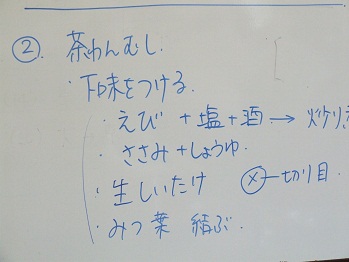 ② 茶わんむし
・下味をつける
・えび + 塩 + 酒 → 炒り
・ささみ + しょうゆ
・生しいたけ ⓧ 切り目
・みつ葉 結ぶ